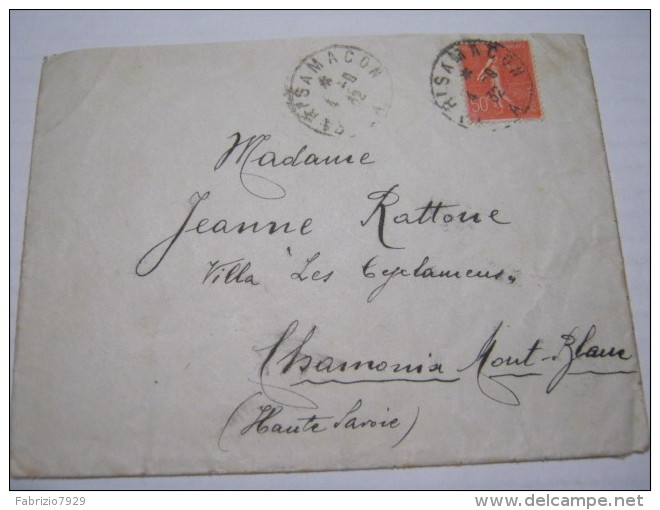 RISAMACON
4 -8
32
RISAMACON
4 -8
32
50
Madame
Jeanne Rattone
Villa "Les Cyclamens"
Chamonix Mont-Blanc
(Haute Savoie)
Fabrizio7929
delcampe.net